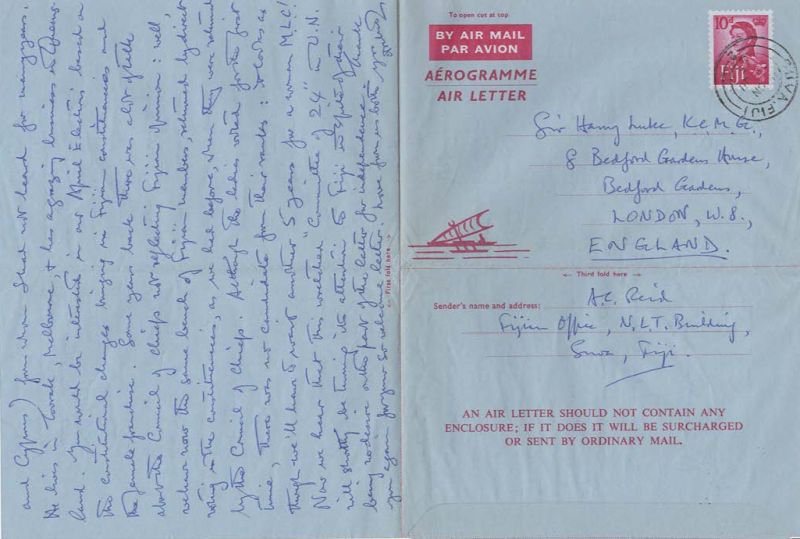 and Cyprus) from whom I had not heard for many years.
He lives in Toorak, Melbourne, & has a grazing business in Queens-
land. You would be interested in our April Elections based on
the constitutional changes bringing in Fijian constituencies and
the female franchise. Some years back there was a lot of talk
about the Council of Chiefs not reflecting Fijian opinion: well,
we have now the same bench of Fijian members, returned by direct
voting in the constituencies, as we had before, when they were returned
by the Council of Chiefs. Although the ladies voted for the first
time, there was no candidate from their ranks: it looks as
though we'll have to wait another 5 years for a woman M.L.C!
Now we hear that this wretched "Committee of 24" in U.N.
will shortly be turning its attention to Fiji in spite of there
being no desire on the part of the latter for independence. Thank
you again for your so welcome letter. Love from us both
First fold here
To open cut at top
BY AIR MAIL
PAR AVION
AÉROGRAMME
AIR LETTER
10d
FIJI
SUVA, FIJI
Sir Harry Luke, K.C.M.G.,
8 Bedford Gardens House,
Bedford Gardens,
LONDON, W.8.,
ENGLAND.
Third fold here
Sender's name and address: A.C. Reid
Fijian Office, N.L.T. Building,
Suva, Fiji.
AN AIR LETTER SHOULD NOT CONTAIN ANY
ENCLOSURE; IF IT DOES IT WILL BE SURCHARGED
OR SENT BY ORDINARY MAIL.